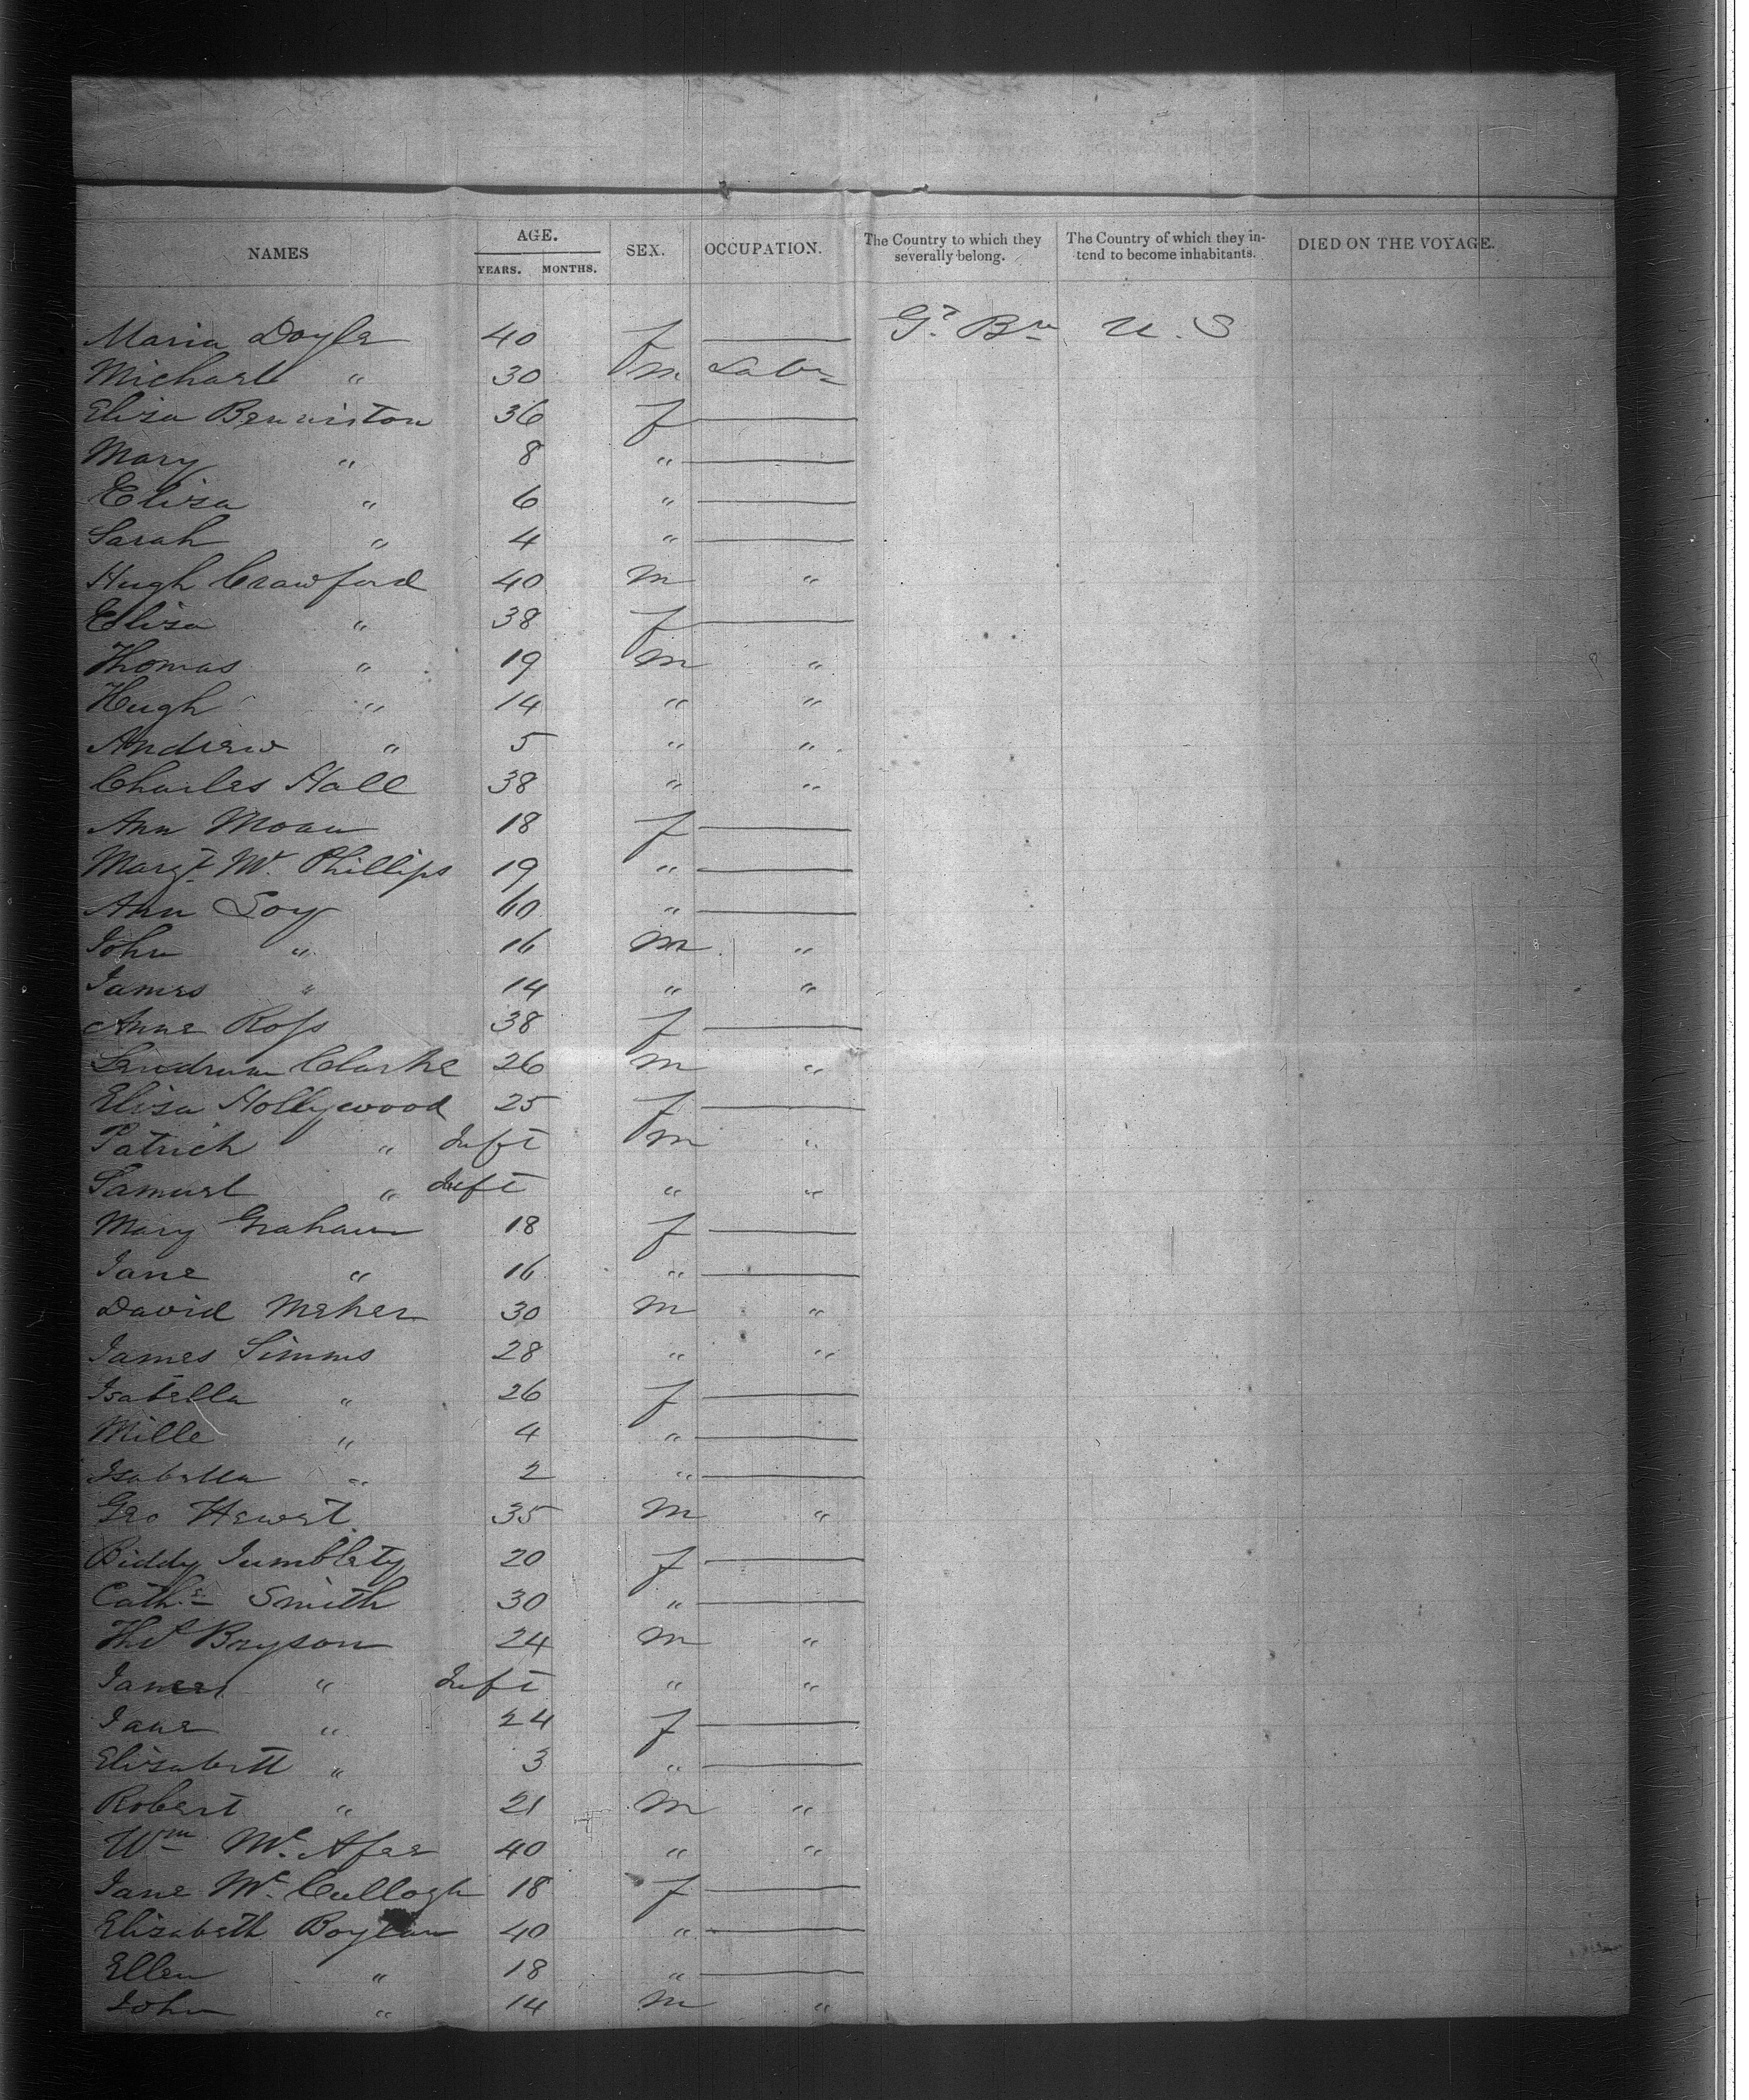 NAMES AGE. YEARS. MONTHS. SEX. OCCUPATION. The Country to which they severally belong. The Country of which they intend to become inhabitants. DIED ON THE VOYAGE.
Maria Doyle 40 f —— Gt. Bn U. S
Michael " 30 m Labr
Eliza Benniston 36 f ——
Mary " 8 " ——
Eliza " 6 " ——
Sarah " 4 " ——
Hugh Crawford 40 m "
Eliza " 38 f ——
Thomas " 19 m "
Hugh " 14 " "
Andrew " 5 " "
Charles Hall 38 " "
Ann Moan 18 f ——
Margt. Mc. Phillips 19 " ——
Ann Loy 60 " ——
John " 16 m "
James " 14 " "
Anne Ross 38 f ——
Clarke 26 m "
Eliza Hollywood 25 f ——
Patrick " Inft m "
Samuel " Inft " "
Mary Graham 18 f ——
Jane " 16 " ——
David Meher 30 m "
James Simms 28 " "
Isabella " 26 f ——
Mille " 4 " ——
Isabella " 2 " ——
Geo Hewet 35 m "
Biddy Tumblety 20 f ——
Cathe Smith 30 " ——
Thos Bryson 24 m "
James " Inft " "
Jane " 24 f ——
Elizabett " 3 " ——
Robert " 21 m "
Wm Mc. Afee 40 " "
Jane Mc. Cullogh 18 f ——
Elizabeth Boylan 40 " ——
Ellen " 18 " ——
John " 14 m "